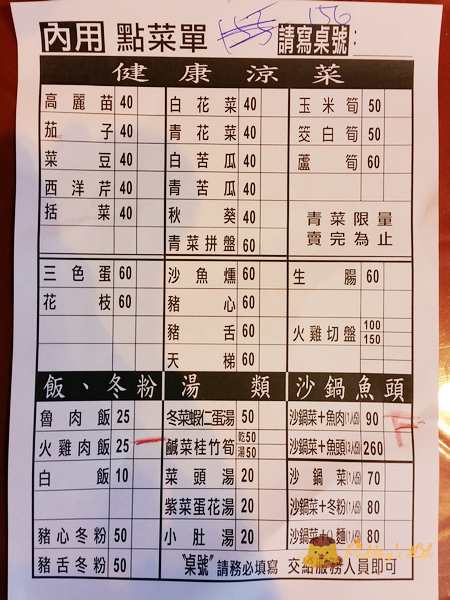 內用 點菜單 155 156 請寫桌號：
健康涼菜
高麗苗 40 白花菜 40 玉米筍 50
茄子 40 青花菜 40 筊白筍 50
菜豆 40 白苦瓜 40 蘆筍 60
西洋芹 40 青苦瓜 40
括菜 40 秋葵 40 青菜限量
青菜拼盤 60 賣完為止
三色蛋 60 沙魚燻 60 生腸 60
花枝 60 豬心 60
豬舌 60 火雞切盤 100 150
天梯 60
飯、冬粉 湯類 沙鍋魚頭
魯肉飯 25 冬菜蝦仁蛋湯 50 沙鍋菜+魚肉(1人份) 90
火雞肉飯 25 鹹菜桂竹筍 乾50 湯50 沙鍋菜+魚頭(3人份) 260
白飯 10 菜頭湯 20 沙鍋菜(1人份) 70
紫菜蛋花湯 20 沙鍋菜+冬粉(1人份) 80
豬心冬粉 50 小肚湯 20 沙鍋菜+麵(1人份) 80
豬舌冬粉 50 "桌號"請務必填寫 交給服務人員即可